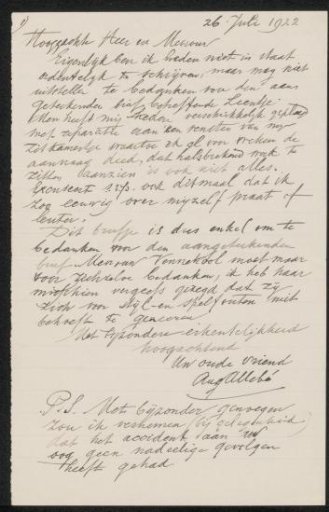 1)
26 Juli 1922
Hooggeachte Heer en Mevrouw
Eigenlijk ben ik heden niet in staat
ordentelijk te schrijven, maar mag niet
uitstellen te bedanken voor den aan-
geteekenden brief betreffende Leentje.
Men heeft mij heden verschrikkelijk geplaagd
met reparatie van een venster van mijn
zitkamertje waartoe ik al voor weken de
aanvraag deed, dat halsbrekend werk te
zitten aanzien is ook niet alles.
Excuseert s.v.p. ook ditmaal dat ik
zoo eeuwig over mijzelf praat of
leuter.
Dit briefje is dus enkel om te
bedanken voor den aangeteekenden
brief Mevrouw Vennekool moet maar
voor zich zelve bedanken, ik heb haar
misschien vergeefs gezegd dat zij
zich voor stijl- en spelfouten niet
behoeft te geneeren
Met bijzondere erkentelijkheid
hoogachtend
Uw oude vriend
Aug Allebé
P.S. Met bijzonder genoegen
zou ik vernemen (bij gelegenheid)
dat het accident aan Uw
oog geen nadeelige gevolgen
heeft gehad